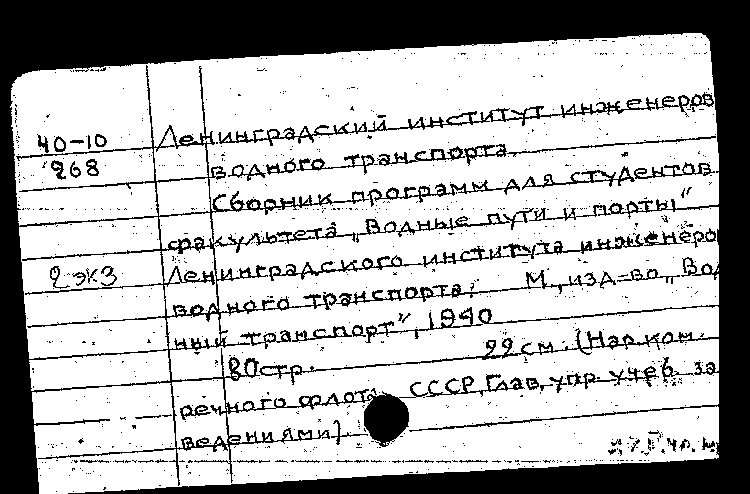 40-10 Ленинградский институт инженеров
268 водного транспорта.
Сборник программ для студентов
факультета „Водные пути и порты"
2 экз Ленинградского института инженеро
водного транспорта. М., изд-во „Вод
ный транспорт", 1940
80стр. 22см. (Нар.ком.
речного флота СССР, Глав, упр. учеб. за
ведениями)